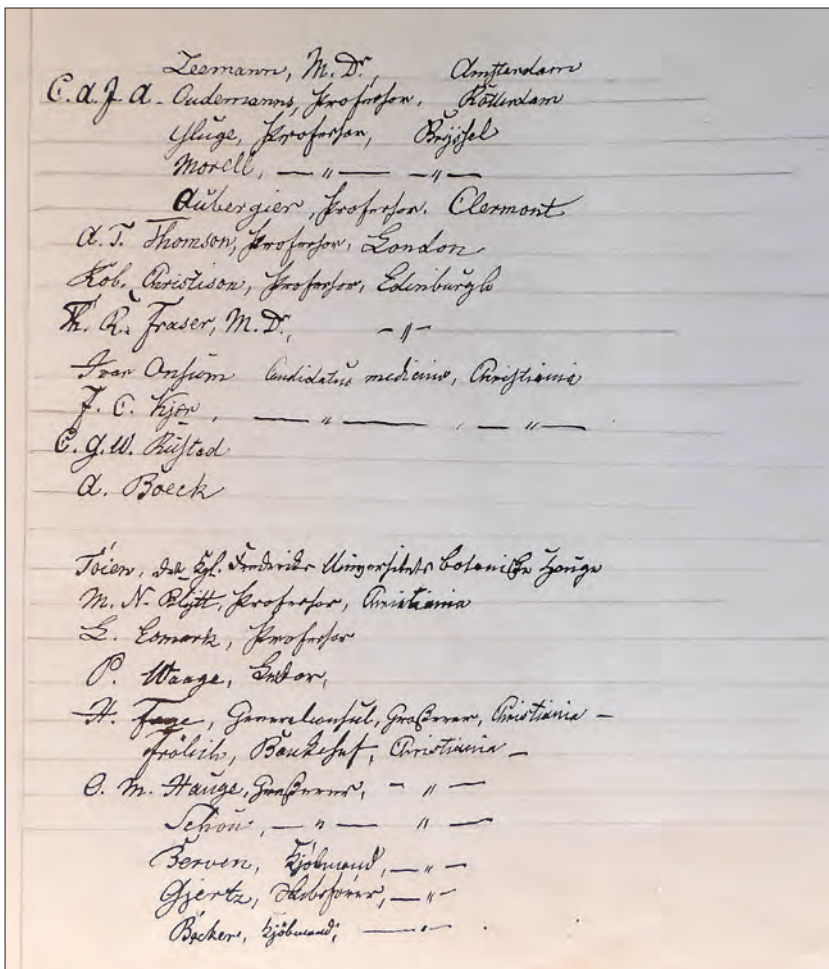 Zeemann, M. Dr, Amsterdam
C. A. J. A. Oudemanns, Professor, Rotterdam
Gluge, Professor, Bryssel
Morell, — " — — " —
Aubergier, Professor. Clermont
A. T. Thomson, Professor, London
Rob. Christison, Professor, Edinburgh
Th. R. Fraser, M. Dr., — " —
Ivar Onsum Candidatus medicinæ, Christiania
J. C. Kjær, — " — , — " —
C. G. W. Rustad
A. Boeck
Töien, det Kgl. Frederiks Universitets botaniske Hauge
M. N. Blytt, Professor, Christiania
L. Esmark, Professor
P. Waage, Lector,
H. Faye, Generalconsul, Grosserer, Christiania —
Frölich, Bankchef, Christiania —
O. M. Hauge, Grosserer, — " —
Schou, — " — " —
Berven, Kjöbmand, — " —
Gjertz, Skibsförer, — " —
Böcker, Kjöbmand, — " —